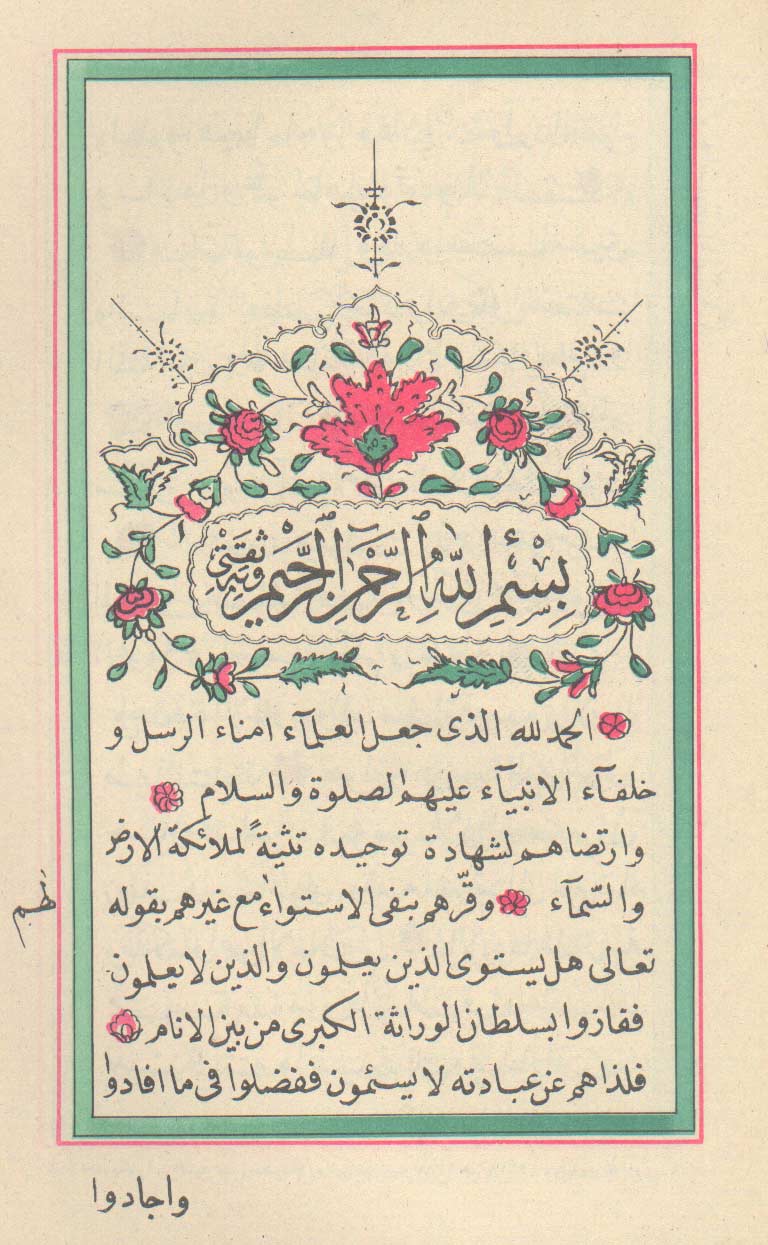 بِسْمِ اللهِ الرَّحْمٰنِ الرَّحِيْمِ وَبِهِ ثِقَتِيْ
الحمد لله الذى جعل العلمآء امناء الرسل و
خلفآء الانبيآء عليهم الصلوة والسلام
وارتضاهم لشهادة توحيده تثنيةً لملائكة الارض
والسّمآء وقرّهم بنفى الاستواء مع غيرهم بقوله
تعالى هل يستوى الذين يعلمون والذين لا يعلمون
ففازوا بسلطان الوراثة الكبرى من بين الانام
فلذاهم عن عبادته لا يسئمون ففضلوا فى ما افادوا
واجادوا